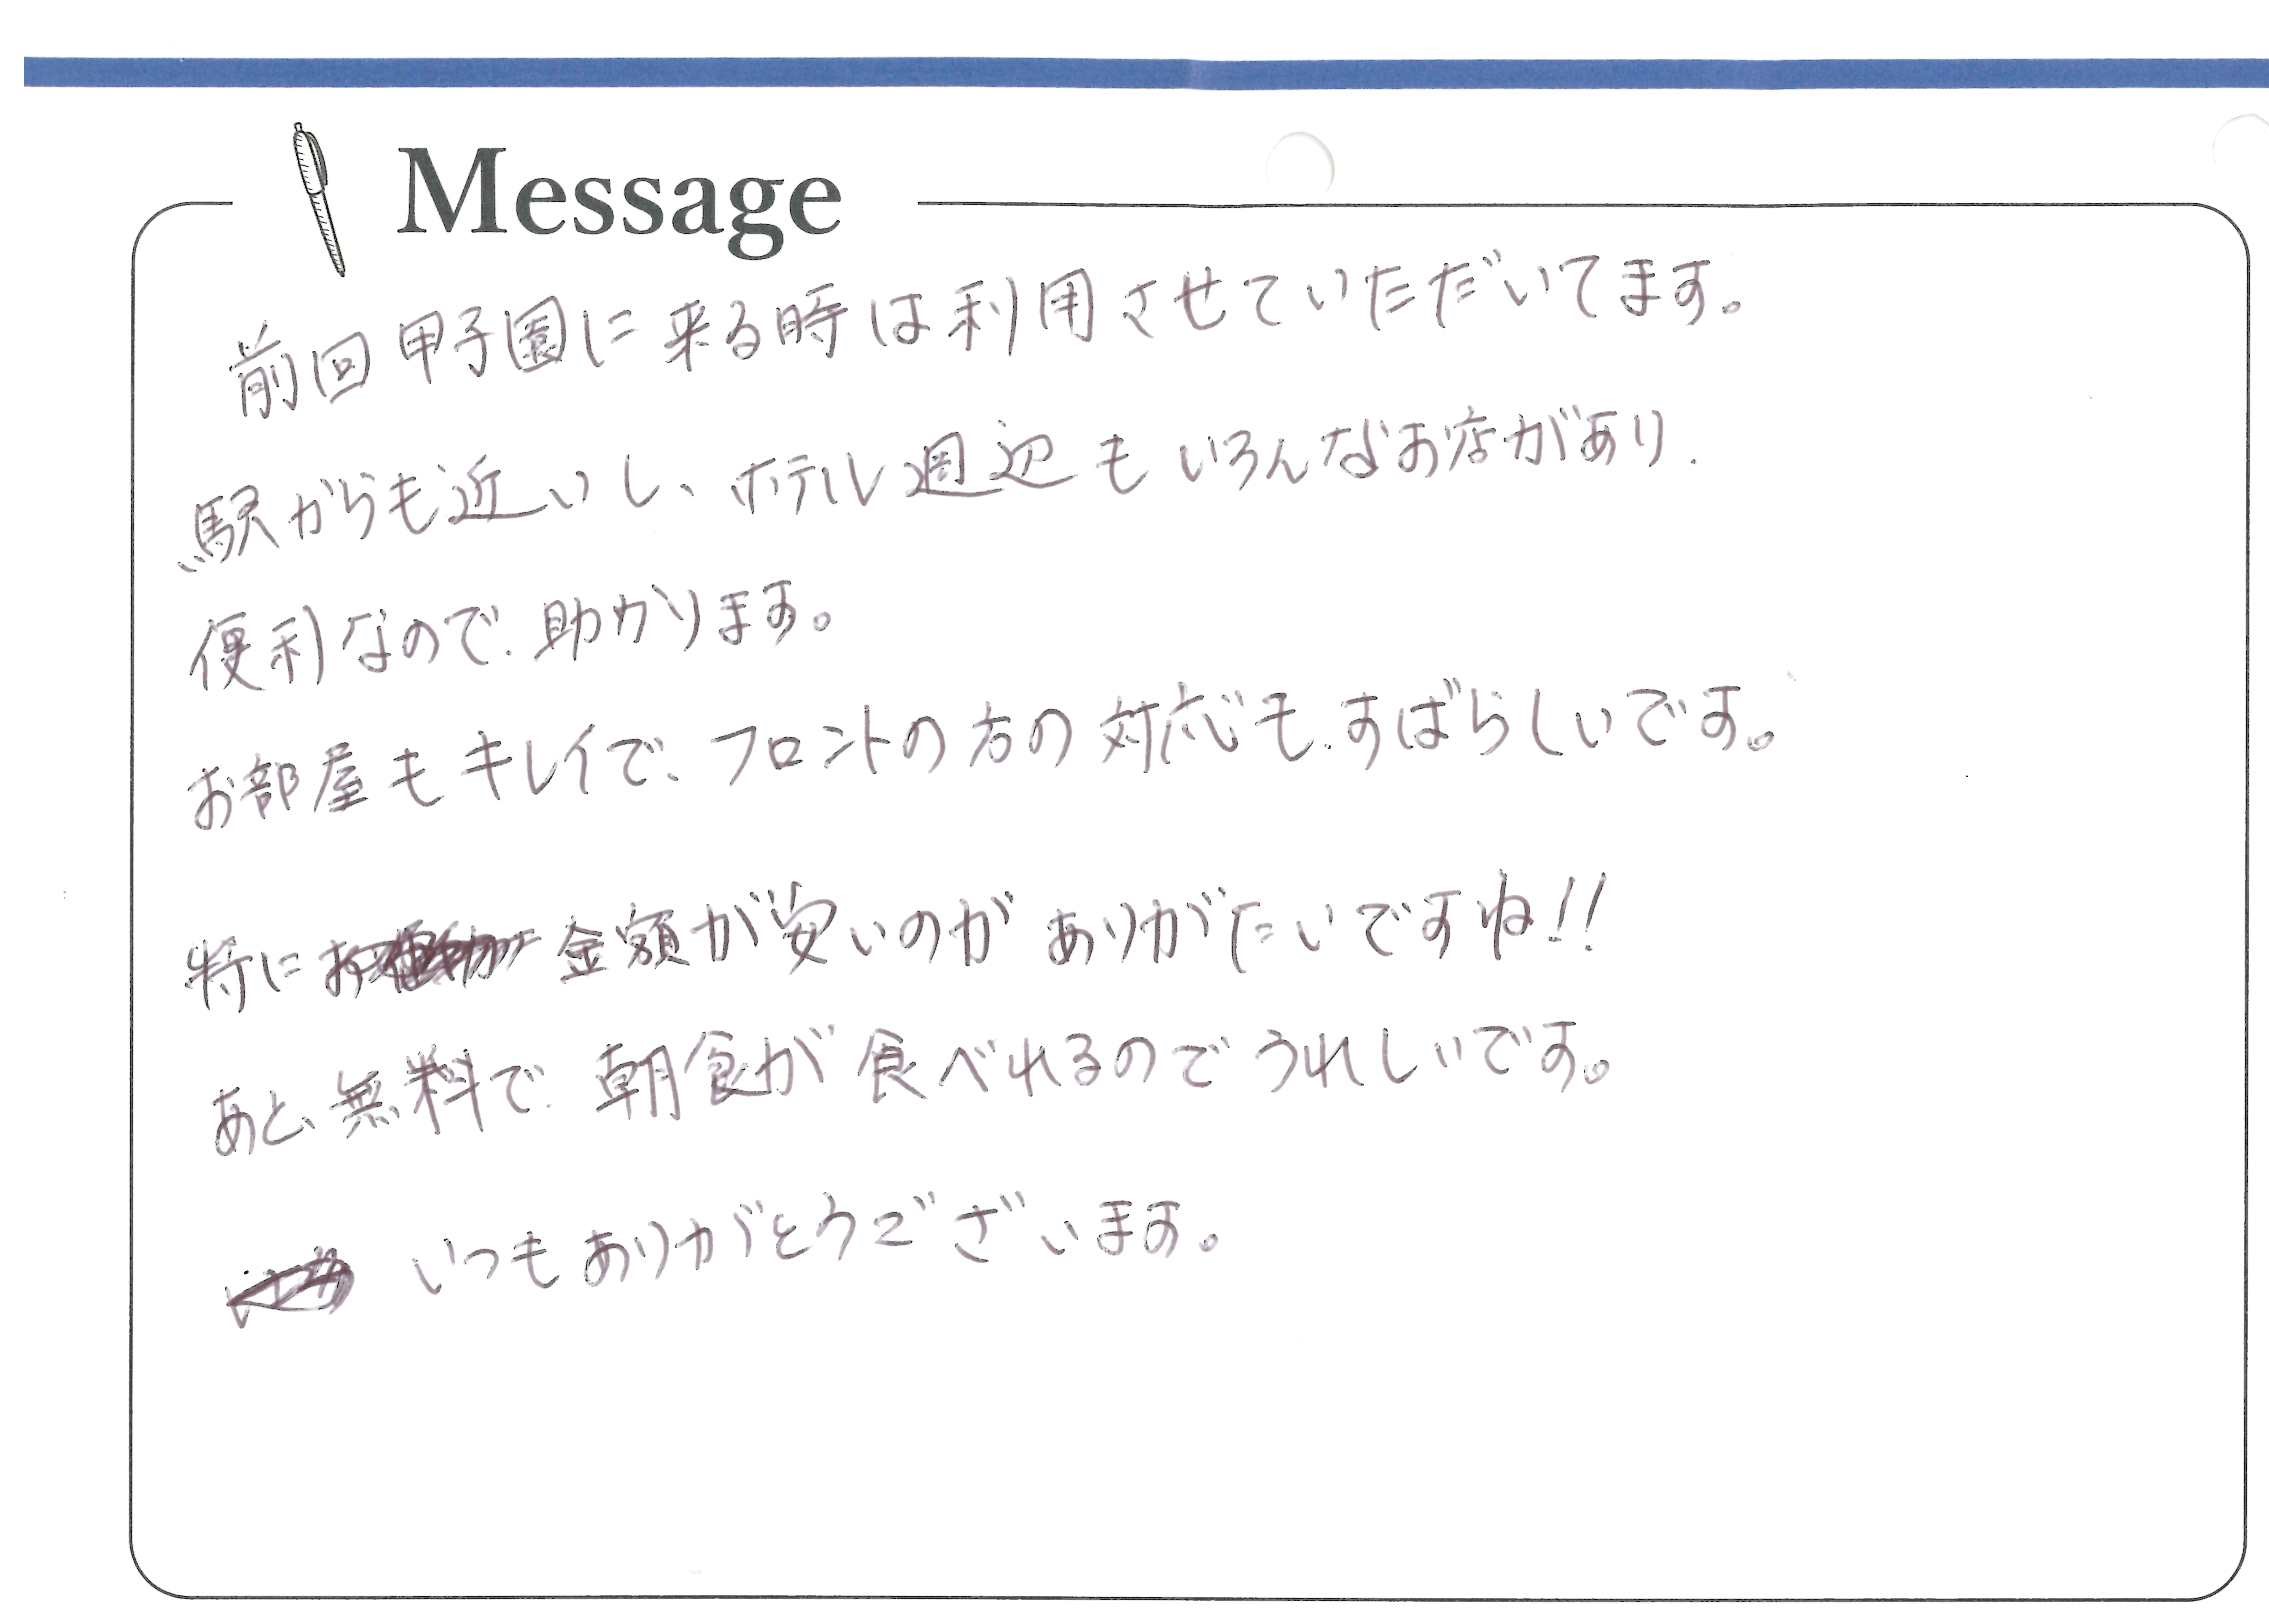 Message
前回甲子園に来る時は利用させていただいてます。
駅からも近いし、ホテル週辺もいろんなお店があり、
便利なので、助かります。
お部屋もキレイで、フロントの方の対応も、すばらしいです。
特に金額が安いのがありがたいですね!!
あと、無料で、朝食が食べれるのでうれしいです。
いつもありがとうございます。